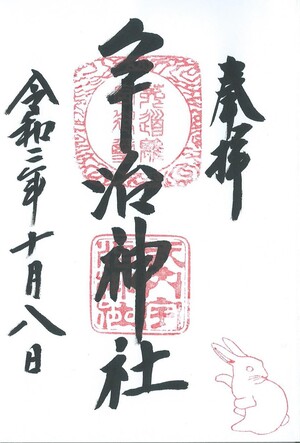 奉拝
宇治神社
令和二年十月八日